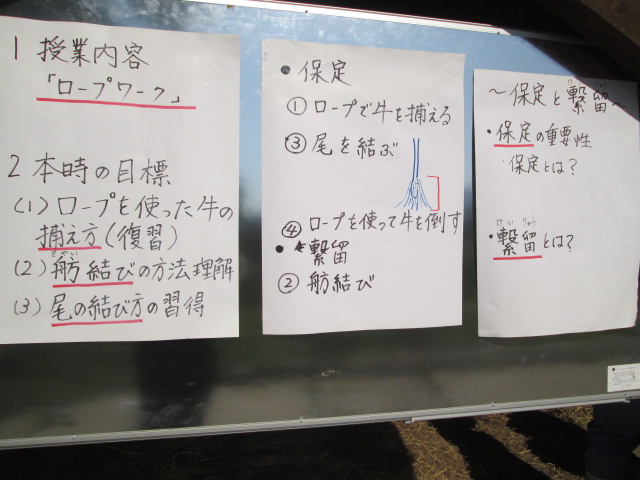 1 授業内容
「ロープワーク」
2 本時の目標
(1) ロープを使った牛の
捕え方(復習)
(2) 舫結びの方法理解
(3) 尾の結び方の習得
● 保定
① ロープで牛を捕える
③ 尾を結ぶ
④ ロープを使って牛を倒す
● 繋留
② 舫結び
～保定と繋留～
・保定の重要性
・保定とは?
けい りゅう
・繋留とは?